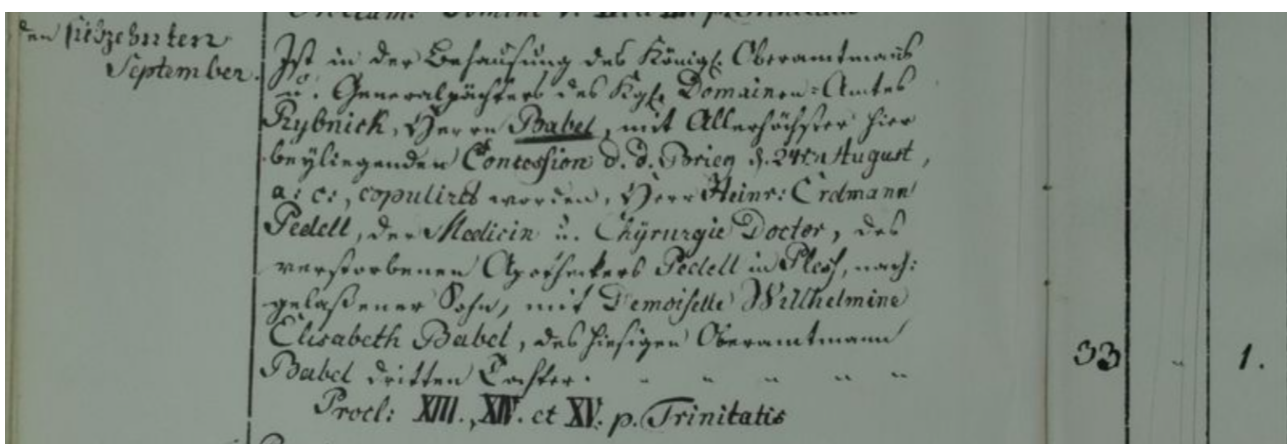 den siebzehnten
September.
Ist in der Behausung des Königl. Oberamtmanns
u. Generalpächters des Kgl. Domainen-Amtes
Rybnick, Herrn Babel, mit Allerhöchster hier
beyliegenden Concession d. d. Brieg d. 24ten August,
a: c:, copulirt worden, Herr Heinr: Erdmann
Pedell, der Medicin u. Chyrurgie Doctor, des
verstorbenen Apothekers Pedell in Pless, nach:
gelaßener Sohn, mit Demoiselle Willhelmine
Elisabeth Babel, des hiesigen Oberamtmann
Babel dritten Tochter.
33 " 1.
Procl: XIII., XIV. et XV. p. Trinitatis